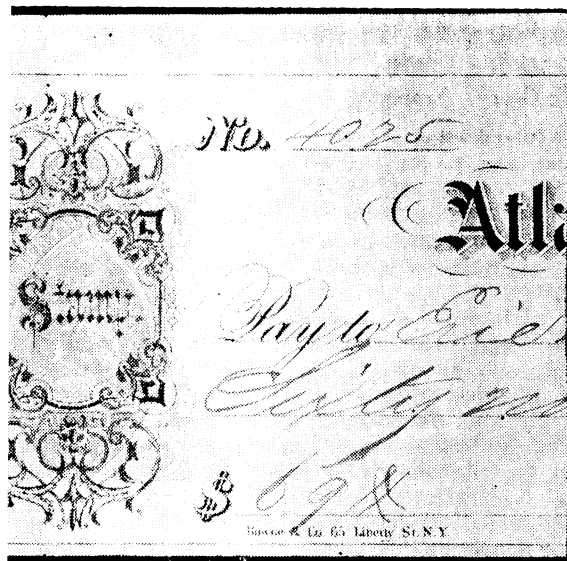 No. 4025
Atla
Pay to Erie
Sixty ni
$ 69
Bowne & Co 65 Liberty St. N.Y.